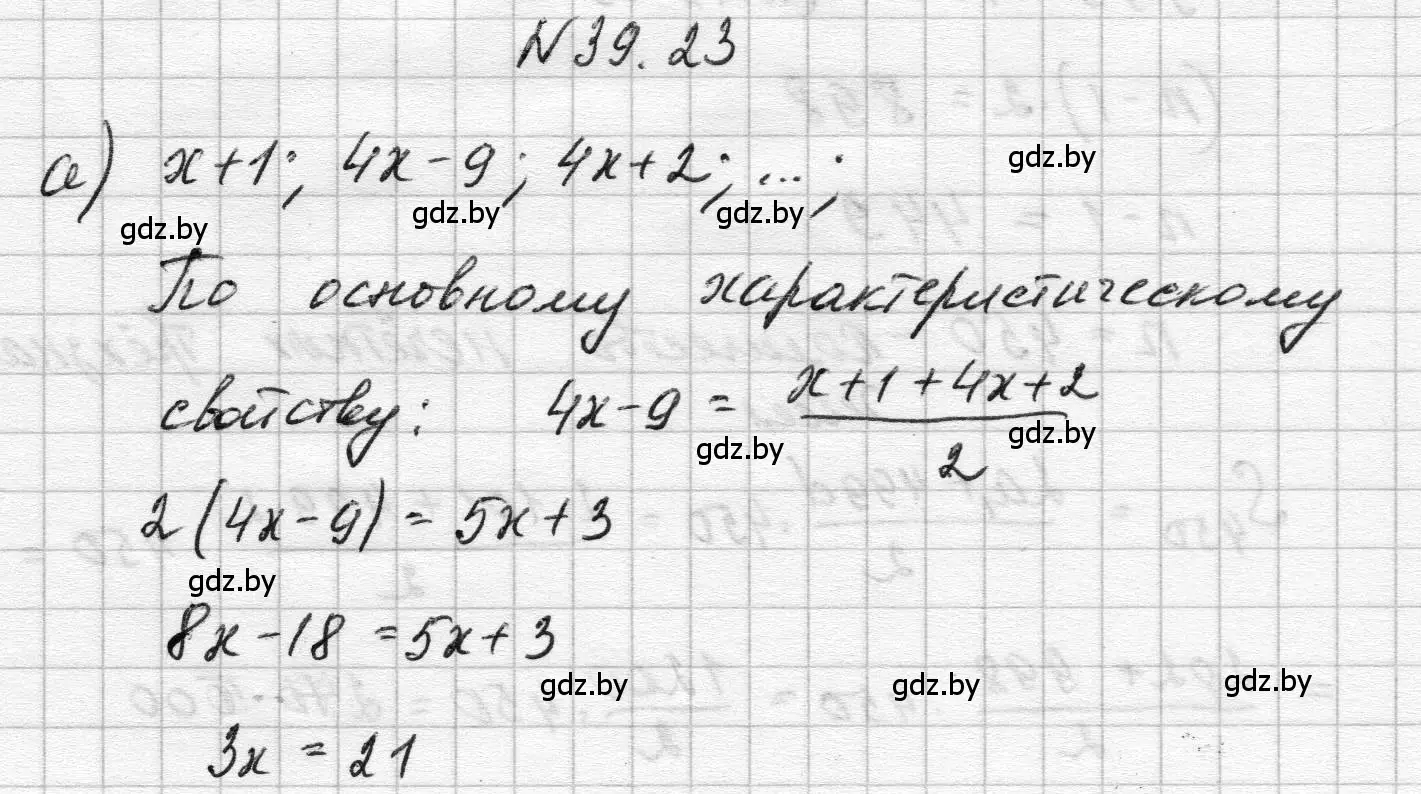 N39.23
а) x+1; 4x-9; 4x+2; ...;
gdz.by
gdz.by gdz.by gdz.by
По основному характеристическому
свойству: 4x-9 = (x+1+4x+2)/2
gdz.by gdz.by
2(4x-9) = 5x+3
gdz.by
8x-18 = 5x+3
gdz.by gdz.by gdz.by
3x = 21